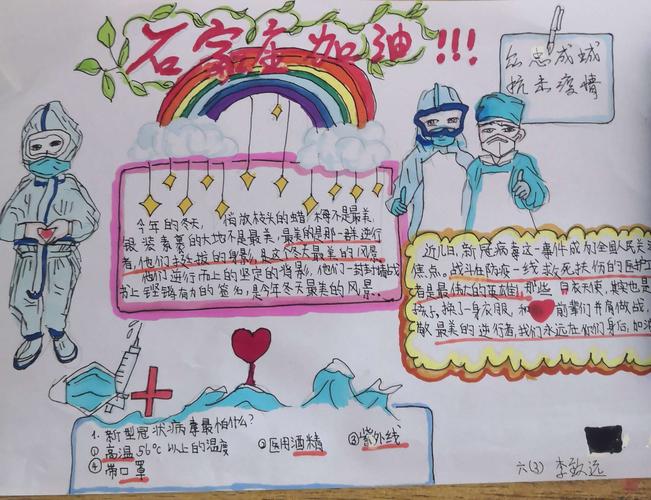 石家庄加油!!!
众志成城
抗击疫情
今年的冬天,俏放枝头的蜡梅不是最美,
银装素裹的大地不是最美,最美的是那一群逆行
者,他们挺拔的身影,是这个冬天最美的风景
他们逆行而上的坚定的背影,他们一封封请战
书上铿锵有力的签名,是今年冬天最美的风景.
近几日,新冠病毒这一事件成为全国人民关注
焦点。战斗在防疫一线救死扶伤的医护工
者是最伟大的英雄们,那些白衣天使,其实也是
换了一身衣服,和前辈们并肩做战,
散最美的逆行者,我们永远在你们身后,加油
1.新型冠状病毒最怕什么?
①高温56°C以上的温度
②医用酒精
③紫外线
④带口罩
六(3) 李歆远